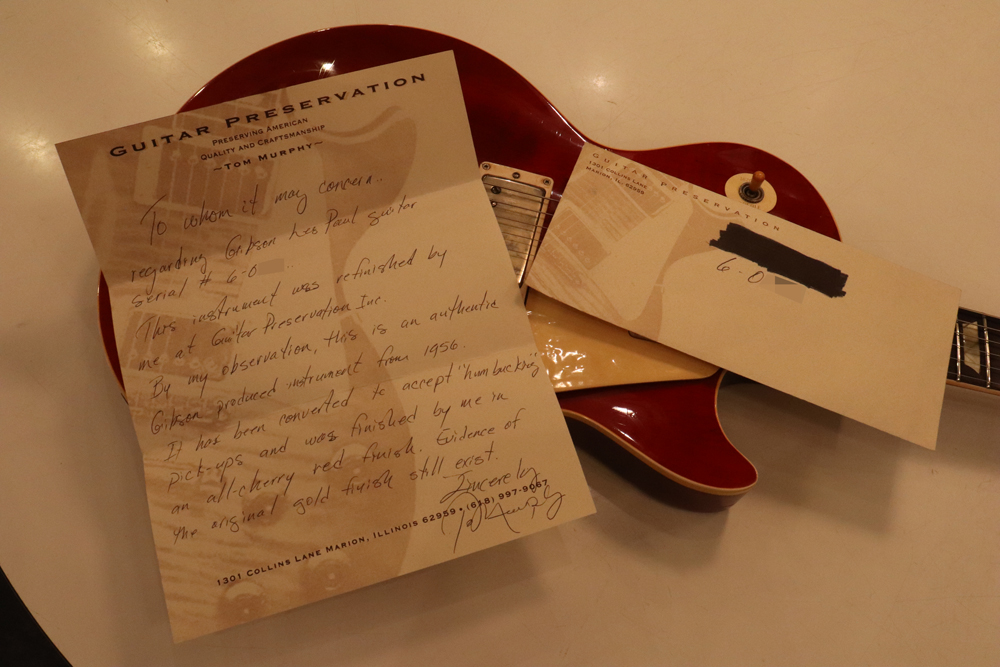 GUITAR PRESERVATION
PRESERVING AMERICAN
QUALITY AND CRAFTSMANSHIP
~TOM MURPHY~
To whom it may concern..
regarding Gibson Les Paul guitar
Serial # 6-0
This instrument was refinished by
me at Guitar Preservation Inc.
By my observation, this is an authentic
Gibson produced instrument from 1956.
It has been converted to accept "humbucking"
pick-ups and was finished by me in
an all-cherry red finish. Evidence of
the original gold finish still exist.
Sincerely
Tom Murphy
1301 COLLINS LANE MARION, ILLINOIS 62959 • (618) 997-9067
GUITAR PRESERVATION
1301 COLLINS LANE
MARION, IL 62959
6-0